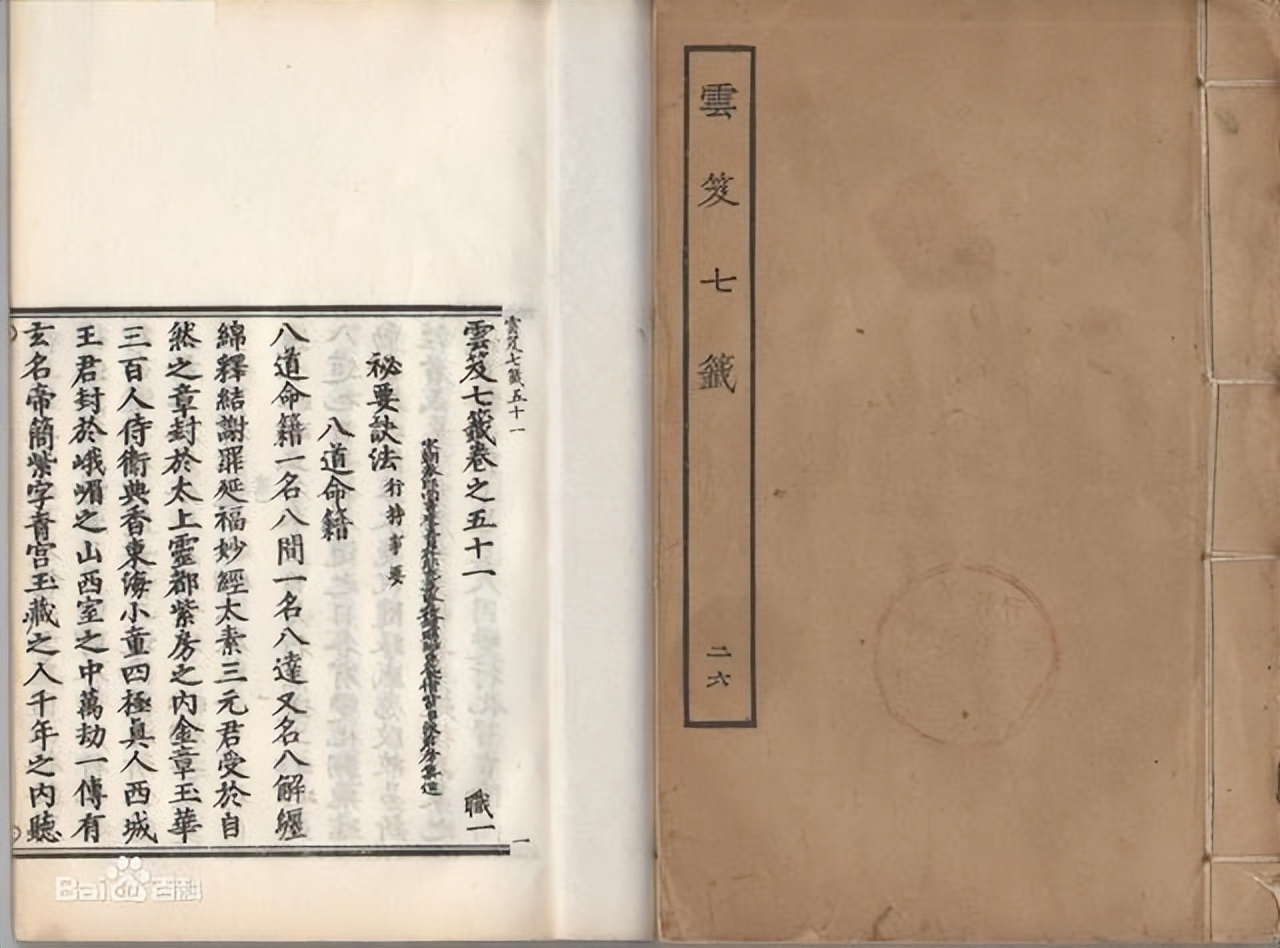 雲笈七籤
二六
雲笈七籤五十一
一
雲笈七籤卷之五十一 職一
秘要訣法 行持事要
八道命籍
八道命籍一名八間一名八達又名八解纒
綿釋結謝罪延福妙經太素三元君受於自
然之章封於太上靈都紫房之內金章玉華
三百人侍衛典香東海小童四極眞人西城
王君封於峨嵋之山西室之中萬劫一傳有
玄名帝簡紫字青宮玉藏之入千年之內聽
Bai du 百科